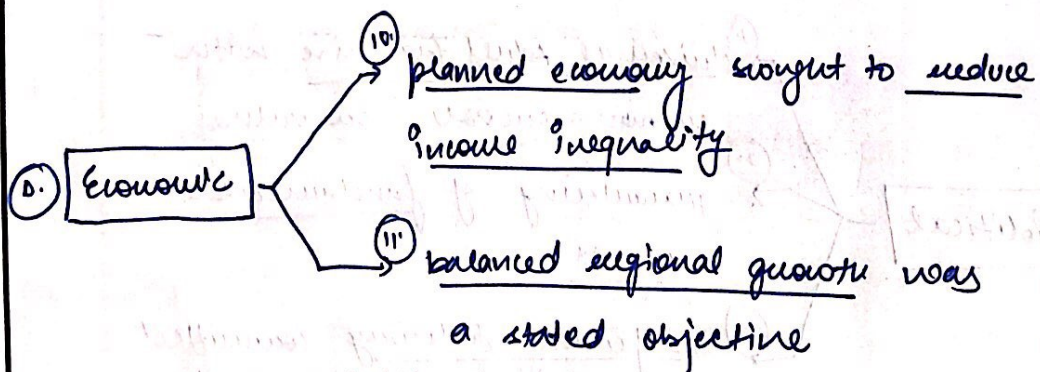 10.
planned economy sought to reduce
income inequality
D. Economic
11.
balanced regional growth was
a stated objective